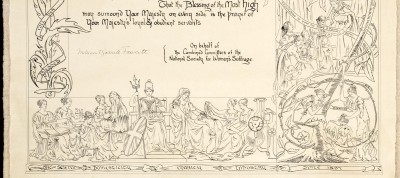 That the Blessing of the Most High
may surround Your Majesty on every side is the prayer of
Your Majesty's loyal & obedient servants
Millicent Garrett Fawcett
On behalf of
the Combined Committees of the
National Society for Women's Suffrage